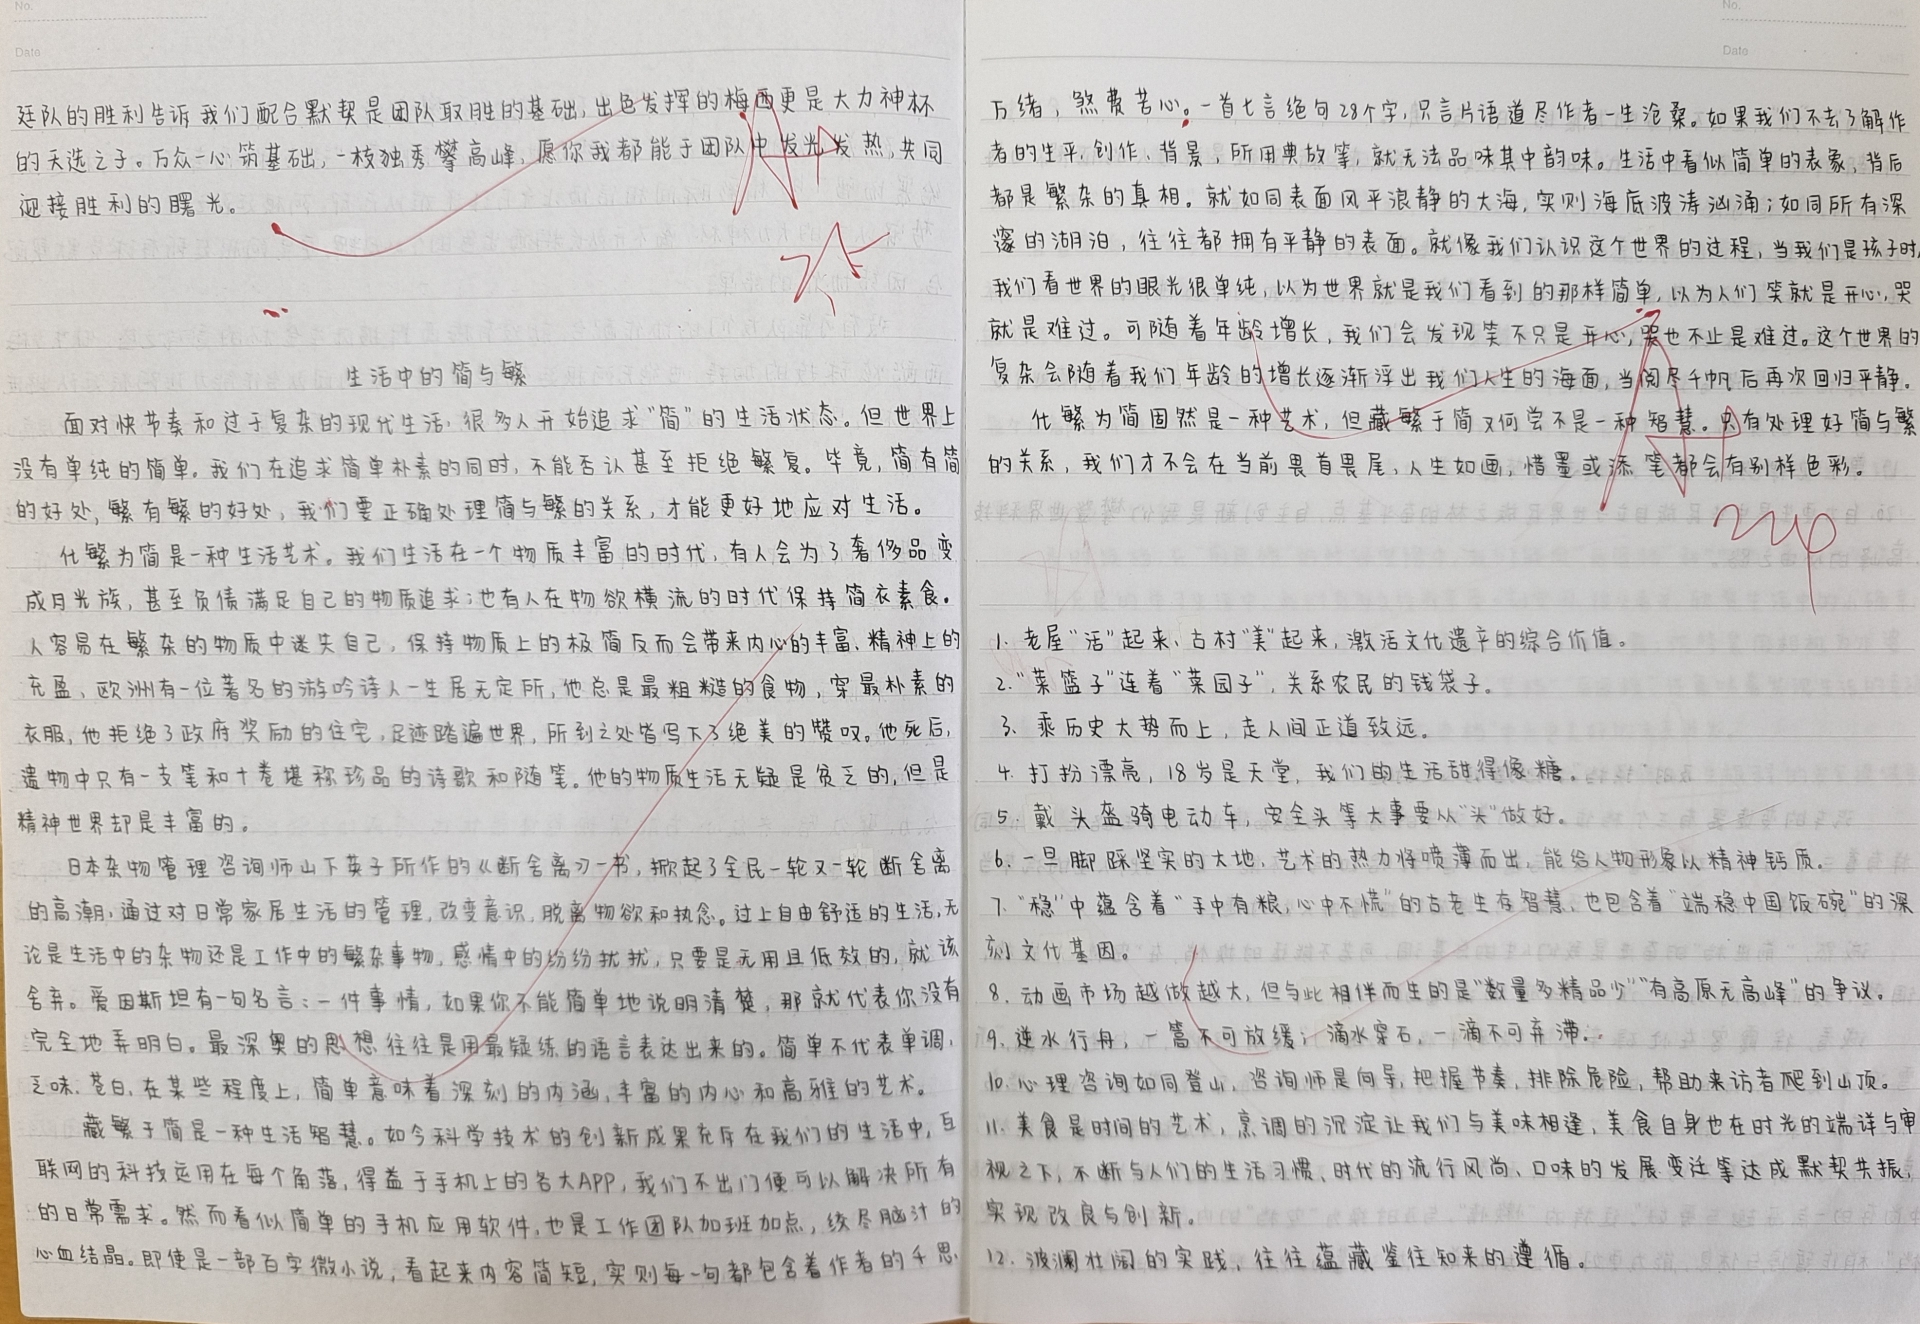 No.
Date
廷队的胜利告诉我们配合默契是团队取胜的基础,出色发挥的梅西更是大力神杯
的天选之子。万众一心筑基础,一枝独秀攀高峰,愿你我都能于团队中发光发热,共同
迎接胜利的曙光。
生活中的简与繁
面对快节奏和过于复杂的现代生活,很多人开始追求"简"的生活状态。但世界上
没有单纯的简单。我们在追求简单朴素的同时,不能否认甚至拒绝繁复。毕竟,简有简
的好处,繁有繁的好处,我们要正确处理简与繁的关系,才能更好地应对生活。
化繁为简是一种生活艺术。我们生活在一个物质丰富的时代,有人会为了奢侈品变
成月光族,甚至负债满足自己的物质追求;也有人在物欲横流的时代保持简衣素食。
人容易在繁杂的物质中迷失自己,保持物质上的极简反而会带来内心的丰富、精神上的
充盈,欧洲有一位著名的游吟诗人一生居无定所,他总是最粗糙的食物,穿最朴素的
衣服,他拒绝了政府奖励的住宅,足迹踏遍世界,所到之处皆写下了绝美的赞叹。他死后,
遗物中只有一支笔和十卷堪称珍品的诗歌和随笔。他的物质生活无疑是贫乏的,但是
精神世界却是丰富的。
日本杂物管理咨询师山下英子所作的《断舍离》一书,掀起了全民一轮又一轮断舍离
的高潮,通过对日常家居生活的管理,改变意识,脱离物欲和执念。过上自由舒适的生活,无
论是生活中的杂物还是工作中的繁杂事物,感情中的纷纷扰扰,只要是无用且低效的,就该
舍弃。爱因斯坦有一句名言:一件事情,如果你不能简单地说明清楚,那就代表你没有
完全地弄明白。最深奥的思想往往是用最凝练的语言表达出来的。简单不代表单调,
乏味、苍白,在某些程度上,简单意味着深刻的内涵,丰富的内心和高雅的艺术。
藏繁于简是一种生活智慧。如今科学技术的创新成果充斥在我们的生活中,互
联网的科技运用在每个角落,得益于手机上的各大APP,我们不出门便可以解决所有
的日常需求。然而看似简单的手机应用软件,也是工作团队加班加点,绞尽脑汁的
心血结晶。即使是一部百字微小说,看起来内容简短,实则每一句都包含着作者的千思
No.
Date
万绪,煞费苦心。一首七言绝句28个字,只言片语道尽作者一生沧桑。如果我们不去了解作
者的生平,创作、背景,所用典故等,就无法品味其中韵味。生活中看似简单的表象,背后
都是繁杂的真相。就如同表面风平浪静的大海,实则海底波涛汹涌;如同所有深
邃的湖泊,往往都拥有平静的表面。就像我们认识这个世界的过程,当我们是孩子时,
我们看世界的眼光很单纯,以为世界就是我们看到的那样简单,以为人们笑就是开心,哭
就是难过。可随着年龄增长,我们会发现笑不只是开心,哭也不止是难过。这个世界的
复杂会随着我们年龄的增长逐渐浮出我们人生的海面,当阅尽千帆后再次回归平静。
化繁为简固然是一种艺术,但藏繁于简又何尝不是一种智慧。只有处理好简与繁
的关系,我们才不会在当前畏首畏尾,人生如画,惜墨或添笔都会有别样色彩。
1. 老屋"活"起来、古村"美"起来,激活文化遗产的综合价值。
2. "菜篮子"连着"菜园子",关系农民的钱袋子。
3. 乘历史大势而上,走人间正道致远。
4. 打扮漂亮,18岁是天堂,我们的生活甜得像糖。
5. 戴头盔骑电动车,安全头等大事要从"头"做好。
6. 一旦脚踩坚实的大地,艺术的热力将喷薄而出,能给人物形象以精神钙质。
7. "稳"中蕴含着"手中有粮,心中不慌"的古老生存智慧,也包含着"端稳中国饭碗"的深
刻文化基因。
8. 动画市场越做越大,但与此相伴而生的是"数量多精品少""有高原无高峰"的争议。
9. 逆水行舟,一篙不可放缓;滴水穿石,一滴不可弃滞.
10. 心理咨询如同登山,咨询师是向导,把握节奏,排除危险,帮助来访者爬到山顶。
11. 美食是时间的艺术,烹调的沉淀让我们与美味相逢,美食自身也在时光的端详与审
视之下,不断与人们的生活习惯、时代的流行风尚、口味的发展变迁等达成默契共振,
实现改良与创新。
12. 波澜壮阔的实践,往往蕴藏鉴往知来的遵循。